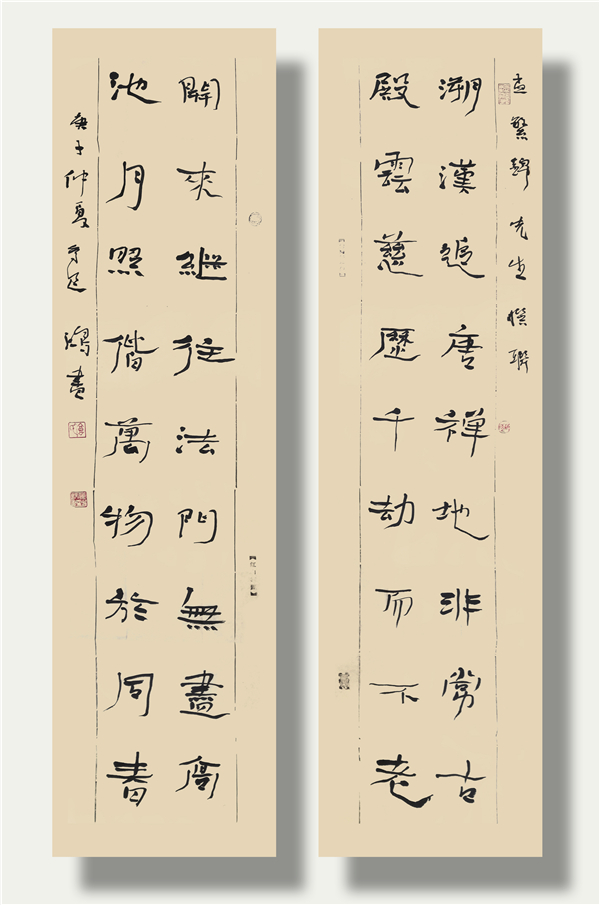 查繁聲先生撰聯
溯漢追唐禪地非常古
殿雲慈歷千劫而不老
開來繼往法門無盡
池月照偕萬物於同春
庚子仲夏 鴻書